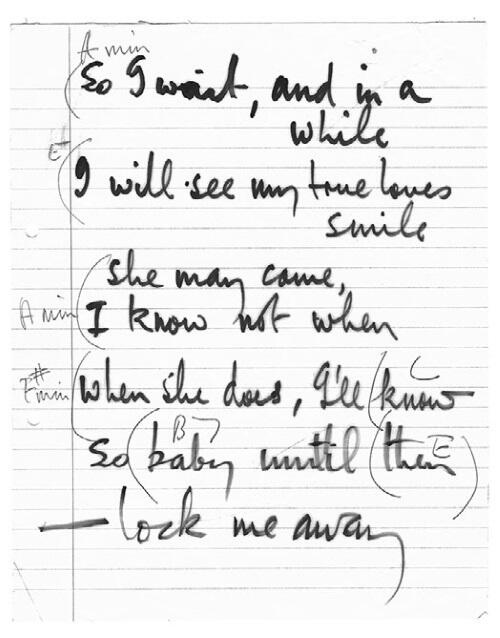 A min
So I wait, and in a
while
E+
I will see my true loves
smile
she may come,
A min I know not when
F#min When she does, I'll know C
So baby until then B7 E
— lock me away